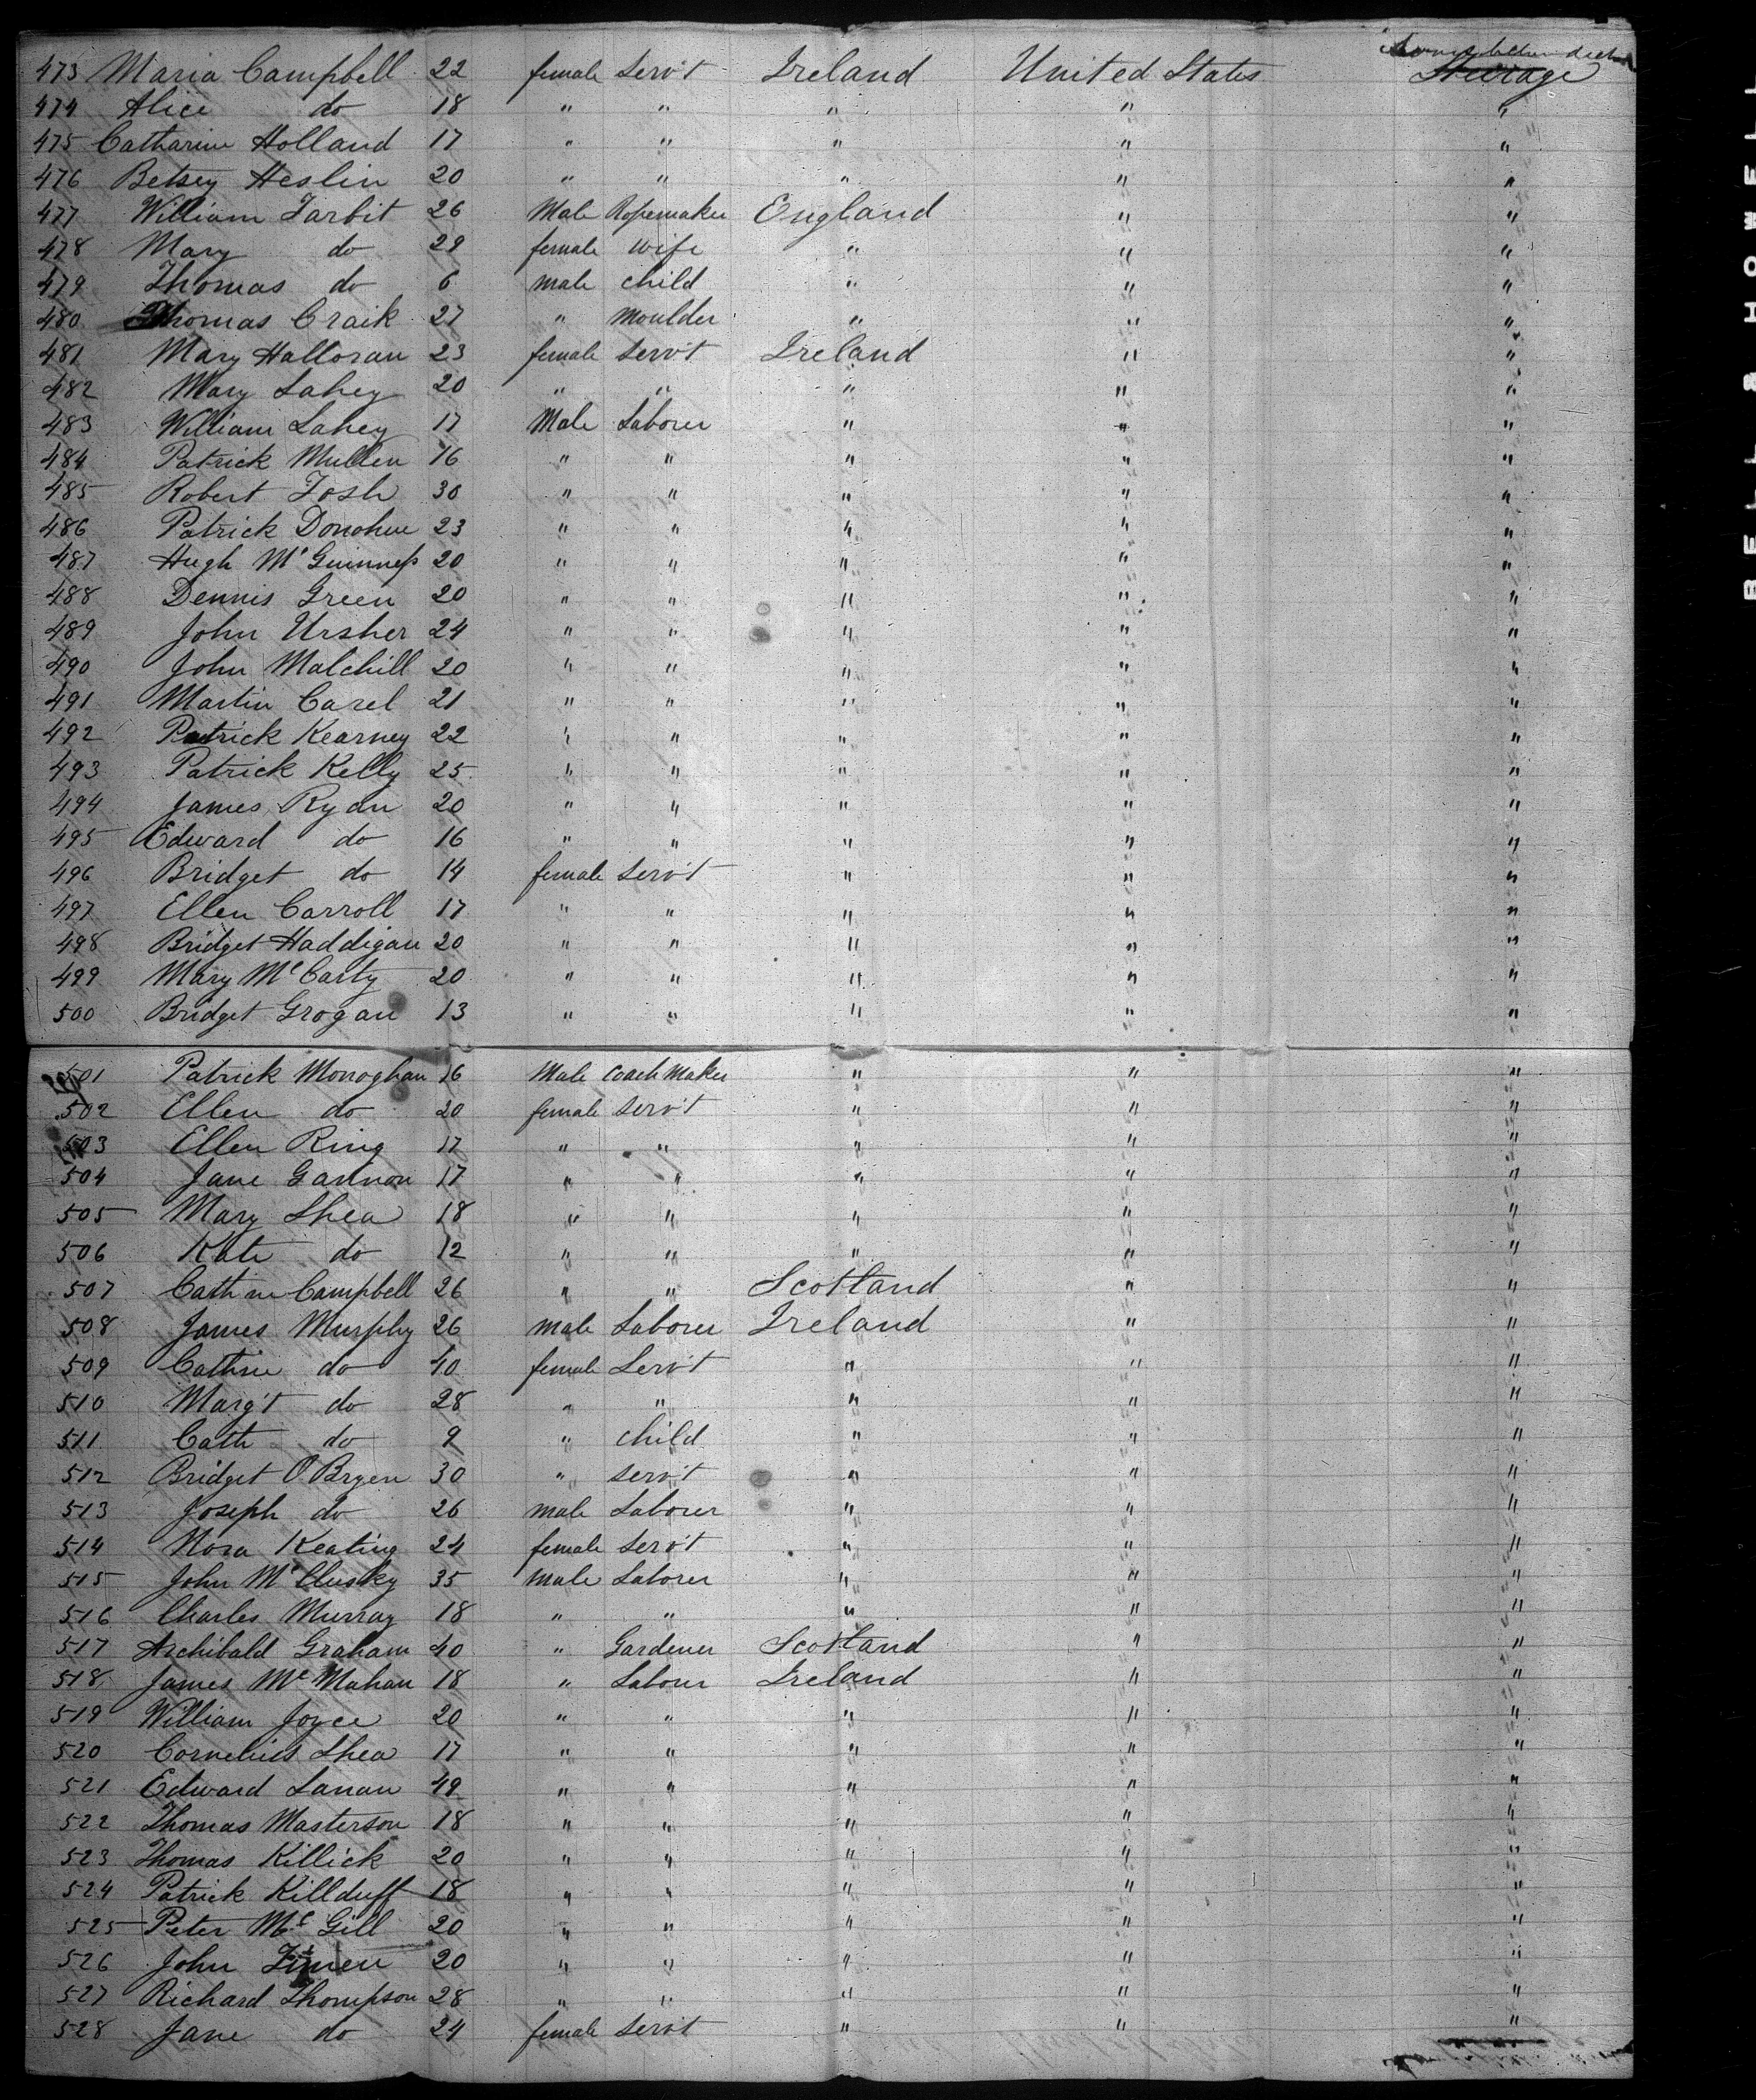 473 Maria Campbell 22 female Serv't Ireland United States Steerage
474 Alice do 18 " " " " "
475 Catharine Holland 17 " " " " "
476 Betsey Heslin 20 " " " " "
477 William Tarbit 26 Male Ropemaker England " "
478 Mary do 29 female wife " " "
479 Thomas do 6 male child " " "
480 Thomas Craik 27 " Moulder " " "
481 Mary Halloran 23 female Serv't Ireland " "
482 Mary Lahey 20 " " " " "
483 William Lahey 17 Male Laborer " " "
484 Patrick Mullen 16 " " " " "
485 Robert Tosh 30 " " " " "
486 Patrick Donohue 23 " " " " "
487 Hugh McGuinness 20 " " " " "
488 Dennis Green 20 " " " " "
489 John Ursher 24 " " " " "
490 John Malchill 20 " " " " "
491 Martin Carel 21 " " " " "
492 Patrick Kearney 22 " " " " "
493 Patrick Kelly 25 " " " " "
494 James Ryan 20 " " " " "
495 Edward do 16 " " " " "
496 Bridget do 14 female Serv't " " "
497 Ellen Carroll 17 " " " " "
498 Bridget Haddigan 20 " " " " "
499 Mary McCarty 20 " " " " "
500 Bridget Grogan 13 " " " " "
501 Patrick Monoghan 16 Male Coach Maker " " "
502 Ellen do 20 female Serv't " " "
503 Ellen Ring 17 " " " " "
504 Jane Gannon 17 " " " " "
505 Mary Shea 18 " " " " "
506 Kate do 12 " " " " "
507 Cath'ne Campbell 26 " " Scotland " "
508 James Murphy 26 male Laborer Ireland " "
509 Cathne do 40 female Serv't " " "
510 Marg't do 28 " " " " "
511 Cath do 9 " child " " "
512 Bridget O'Bryen 30 " serv't " " "
513 Joseph do 26 male Laborer " " "
514 Nora Keating 24 female serv't " " "
515 John McClusky 35 male Laborer " " "
516 Charles Murray 18 " " " " "
517 Archibald Graham 40 " Gardener Scotland " "
518 James McMahan 18 " Labour Ireland " "
519 William Joyce 20 " " " " "
520 Cornelius Shea 17 " " " " "
521 Edward Lanan 49 " " " " "
522 Thomas Masterson 18 " " " " "
523 Thomas Killick 20 " " " " "
524 Patrick Killduff 18 " " " " "
525 Peter McGill 20 " " " " "
526 John 20 " " " " "
527 Richard Thompson 28 " " " " "
528 Jane do 24 female Serv't " " "
BELL & HOWELL